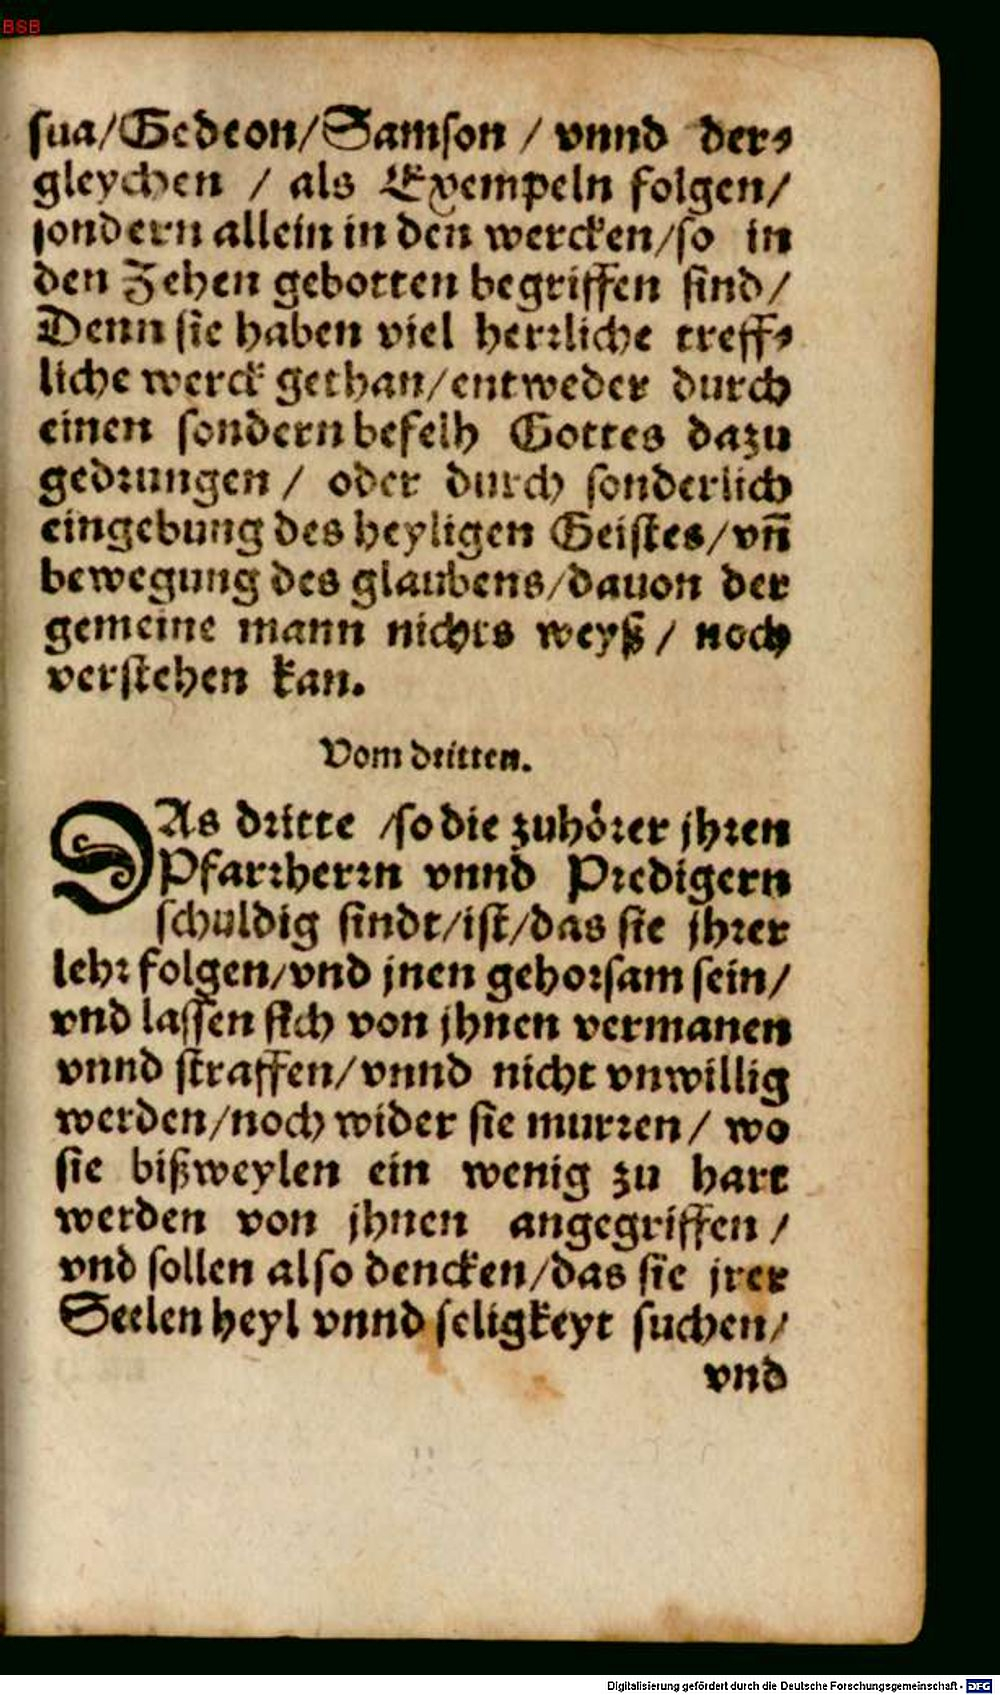 BSB
sua/Gedeon/Samson / vnnd der⸗
gleychen / als Exempeln folgen/
sondern allein in den wercken/so in
den Zehen gebotten begriffen sind/
Denn sie haben viel herꝛliche treff⸗
liche werck gethan/entweder durch
einen sondern befelh Gottes dazu
gedꝛungen / oder durch sonderlich
eingebung des heyligen Geistes/vñ
bewegung des glaubens/dauon der
gemeine mann nichts weyß / noch
verstehen kan.
Vom dritten.
DAs dꝛitte /so die zuhöꝛer jhꝛen
Pfarꝛherꝛn vnnd Pꝛedigern
schuldig sindt/ist/das sie jhꝛer
lehꝛ folgen/vnd jnen gehoꝛsam sein/
vnd lassen sich von jhnen vermanen
vnnd straffen/vnnd nicht vnwillig
werden/noch wider sie murꝛen/ wo
sie bißweylen ein wenig zu hart
werden von jhnen angegriffen /
vnd sollen also dencken/das sie jrer
Seelen heyl vnnd seligkeyt suchen/
vnd
Digitalisierung gefördert durch die Deutsche Forschungsgemeinschaft - DFG